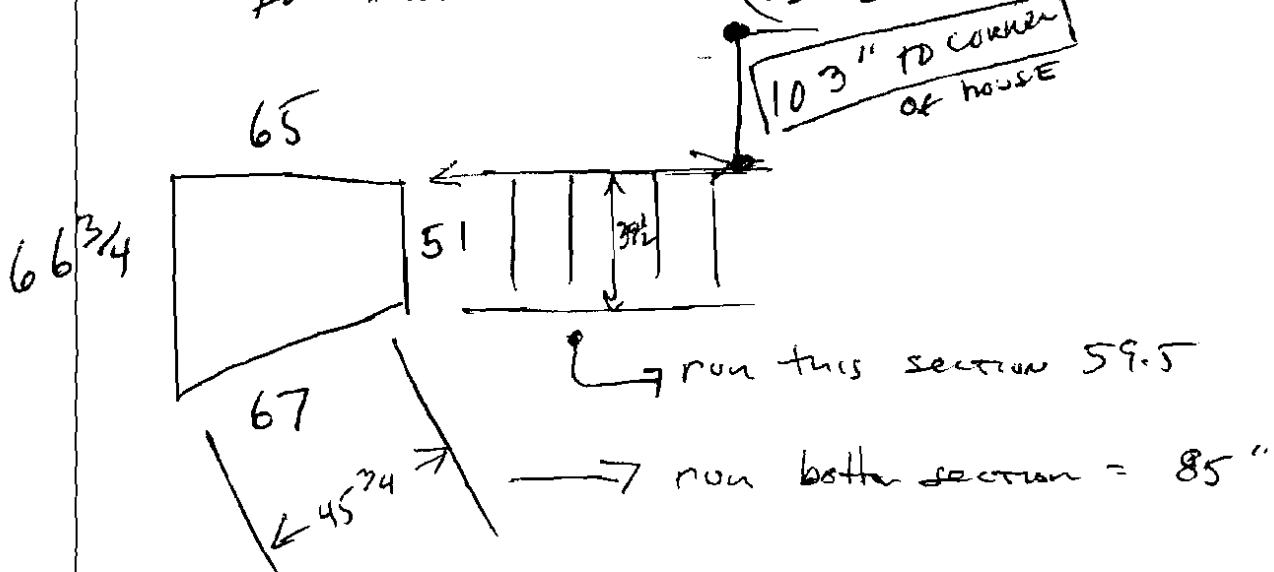 103" TO CORNER
OF HOUSE
65
66 3/4
51
39 1/2
run this section 59.5
67
45 3/4
run bottm section = 85"